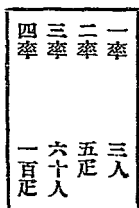 一率　三人
二率　五疋
三率　六十人
四率　一百疋